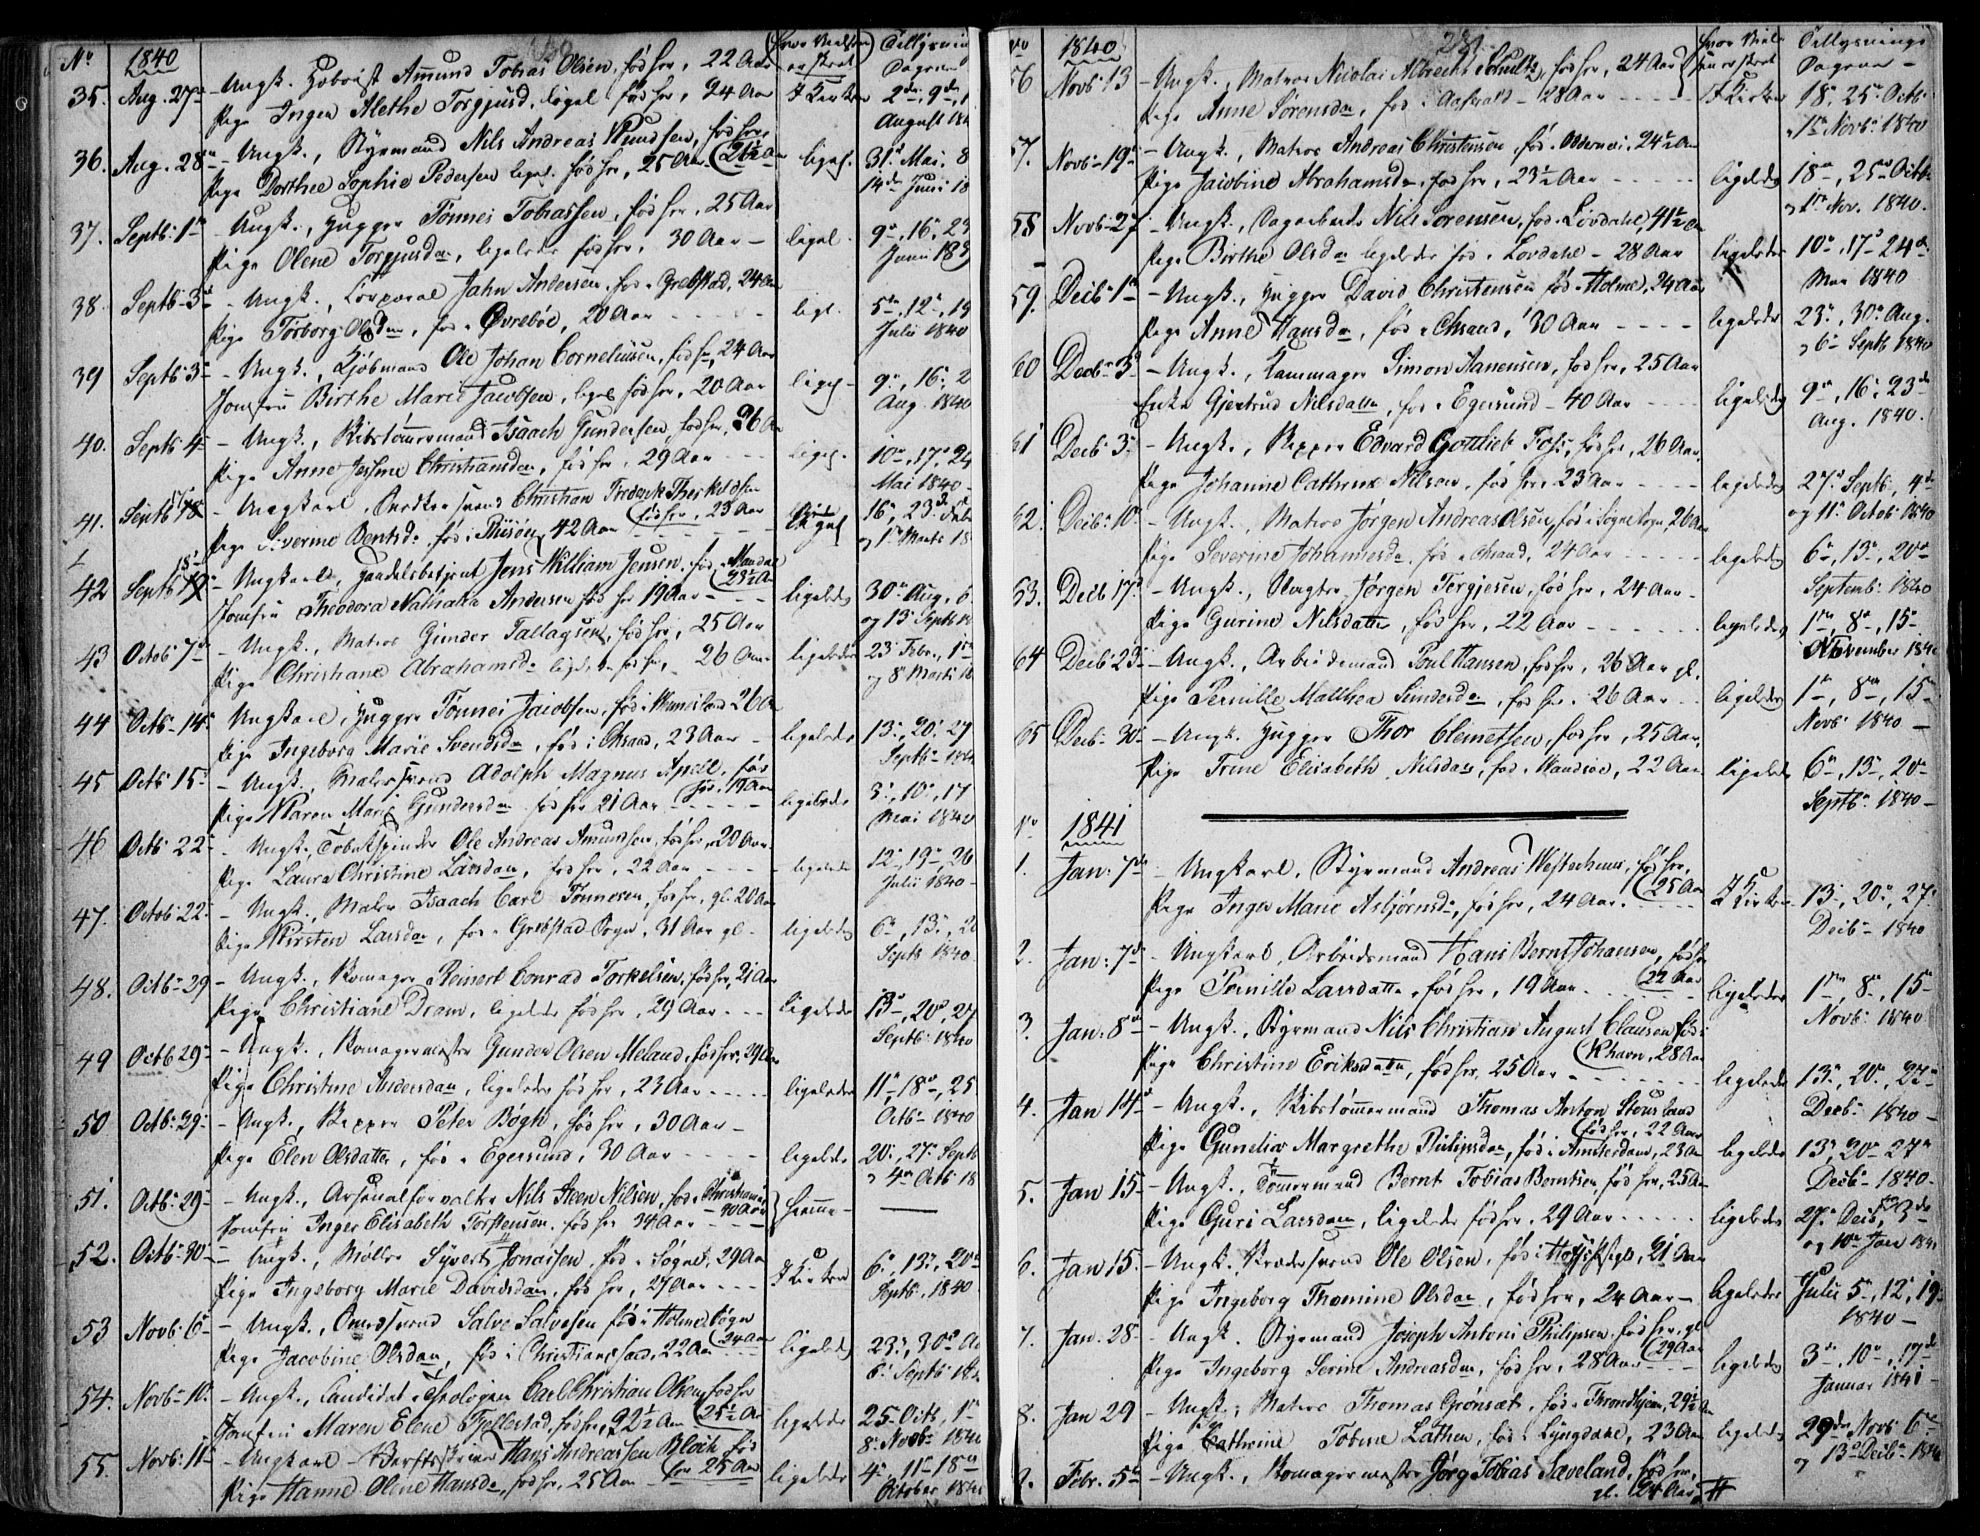 No 1840 Hvor Vielsen er skeet Tillysnings Dagene
35. Aug. 27de - Ungk. Hoboist Amund Tobias Olsen, fød her, 22 Aar
Pige Inger Alethe Torgjusd. ligel. fød her, 24 Aar I Kirken 2den, 9de, August 184
36. Aug. 28de - Ungk., Styrmand Nils Andreas Knudsen, fød her, 26½ Aar
Pige Dorthee Sophie Pedersen ligel. fød her, 25 Aar ligel. 31te Mai 14de Juni
37. Septb. 1ste - Ungk., Hugger Tønnes Tobiassen, fød her, 25 Aar
Pige Olene Torgjusdr, ligeledes fød her, 30 Aar - ligel. 9de, 16de, 23 Juni 18
38. Septb. 3de - Ungk., Corporal Jahn Andersen fød i Grebstad, 24 Aar
Pige Torborg Olsdr, fød i Øvrebøe, 20 Aar ligl. 5te, 12te, 19 Julii 1840
39 Septb. 3de - Ungk., Kjøbmand Ole Johan Corneliussen, fød her, 24 Aar
Jomfru Birthe Marie Jacobsen, ligel. fød her, 20 Aar ligel. 9de, 16de, 2 Aug. 1840
40. Septb. 4de - Ungk., Skibstømmermand Isaach Gundersen, fød her, 26 Aar
Pige Anne Josine Christiansdr, fød her, 29 Aar ligel. 10de, 17de, 24 Mai 1840
41. Septb. - Ungkarl, Christian Frederik Therkildsen fød her, 23 Aar
Pige Severine Bentsd. fød i Riisøer, 42 Aar ligel 16de, 23de Febr og 1ste Marts 18
42 Septb. 18de - Ungkarl, Handelsbetjent Jens William Jensen, fød i Mandal 23½ Aar
Jomfru Theodora Nathalia Andersen fød her 19 Aar ligeledes 30te Aug. 6 og 13de Septb.
43 Octob. 7de - Ungk., Matros Gunder Tallagsen, fød her, 25 Aar
Pige Christiane Abrahamsdr ligeledes fød her, 26 Aar ligeledes 23de Febr., 1ste og 8de Marts
44 Octb. 14de Ungkarl, Hugger Tønnes Jacobsen, fød i 26 Aar
Pige Ingeborg Marie Svendsdr, fød i Chrsand, 23 Aar ligeledes 13de, 20de, 27 Septb. 184
45 Octb. 15de - Ungk., Malersvend Adolph Magnus Apell, fød her, 19 Aar
Pige Maren Marie Gundersdr fød her 21 Aar ligeledes 3de, 10de, 17 Mai 1840
46 Octb. 22de - Ungk., Tobakspinder Ole Andreas Amundsen, fød her, 20 Aar
Pige Laura Christine Larsdr, fød her, 22 Aar ligeledes 12te, 19de, 26 Julii 1840
47. Octob. 22de - Ungk., Maler Isaach Carl Tønnesen, fød her, gl. 20 Aar
Pige Kirsten Larsdr, fød i Grebstad Sogn, 31 Aar gl. ligeledes 6te, 13de, 20 Septb. 1840
48. Octb. 29 - Ungk., Skomager Reinert Conrad Torkelsen, fød her, 21 Aar
Pige Christiane Dram, ligeledes fød her, 29 Aar ligeledes 13de, 20de, 27 Septb. 1840
49 Octb. 29de - Ungk., Skomagermester Gunder Olsen Meland, fød her, 29 Aar
Pige Christine Andersdr, ligeledes fød her, 23 Aar ligeledes 11te, 18de, 25 Octb. 1840
50 Octb. 29de - Ungk., Skipper Peter Bøgh, fød her, 30 Aar
Pige Elen Olsdatter, fød i Egersund, 30 Aar ligeledes 20de, 27de Septb. og 4de Octb. 18
51. Octb. 29de - Ungk., Arsenalforvalter Nils Aven Nilsen, fød i Christiania 40 Aar
Jomfru Inger Elisabeth Torstensen, fød her 34 Aar hjemme
52. Octb. 30de - Ungk., Møller Syvert Jonassen, fød i Søgne, 29 Aar
Pige Ingeborg Marie Davidsdr, fød her, 27 Aar I Kirken 6te, 13de, 20de Septb. 1840
53 Novb. 6te - Ungk., Salve Salvesen fød i Holme Sogn 24 Aar
Pige Jacobine Olsdr, fød i Christiansand, 22 Aar ligeledes 23de, 30te Au 6te Septb.
54. Novb. 10de - Ungk., Candidat theologiæ Carl Christian Olsen, fød her 25½ Aar
Jomfru Maren Elene Fjellestad, fød her, 22½ Aar ligeledes 25de Octb, 1ste 8de Novbr 1840
55. Novb. 11te - Ungkarl - Hans Andreassen Bloch fød her 25 Aar
Pige Hanne Olene Hansdr, fød her, 25 Aar ligeledes 4de, 11te 18de October 184
No 1840 Hvor Vielsen er skeet Tillysnings Dagene
56 Novb. 13 - Ungk., Matros Nicolai Albrecht Schultz, fød her, 24 Aar
Pige Anne Sørensdr, fød i - 28 Aar I Kirken 18de, 25de Octb. og 1ste Novb. 1840
57. Novb. 19de - Ungk., Matros Andreas Christensen, fød i Oddernes, 24½ Aar
Pige Jacobine Abrahamsdr, fød her, 23½ Aar ligeledes 18de, 25de Octb. og 1ste Nov. 1840.
58 Novb. 27 - Ungk., Dagarbeider Nils Sørensen, fød i Lovdahl, 41½ Aar
Pige Birthe Olsdr ligeledes fød i Lovdahl - 28 Aar ligeledes 10de, 17de 24de Mai 1840
59. Decb. 1ste - Ungk., Hugger David Christensen fød i Holme, 24 Aar
Pige Anne Hansdr, fød i Chrsand, 30 Aar ligeledes 23de, 30te Aug. og 6te Septb 1840
60 Decb. 3de - Ungk., Kammager Simon Aanensen, fød her, 25 Aar
Enke Gjertrud Nilsdatter, fød i Egersund - 40 Aar ligeledes 9de, 16de, 23de Aug. 1840.
61 Decb. 3de - Ungk., Skipper Edvard Gottlieb Foss, fød her, 26 Aar.
Pige Johanne Cathrine Nilsen, fød her, 23 Aar ligeledes 27de Septb, 4de og 11te Octob. 1840
62. Decb. 10de - Ungk., Matros Jørgen Andreas Olsen, fød i Søgne Sogn, 26 Aar
Pige Severine Johannesdr fød i Chrsand, 24 Aar ligeledes 6te, 13de, 20de Septemb. 1840
63. Decb 17de - Ungk., Jørgen Torgjesen, fød her, 24 Aar
Pige Gurine Nilsdatter, fød her, 22 Aar ligeledes 1ste, 8de, 15de November 1840
64 Decb. 23de - Ungk., Arbeidsmand Poul Hansen, fød her, 26 Aar gl.
Pige Pernille Matthea Simensdr, fød her, 26 Aar ligeledes 1ste, 8de, 15de Novb. 1840
65 Decb. 30te - Ungk. Hugger Thor Clemetsen, fød her, 25 Aar
Pige Trine Elisabeth Nilsdr, fød i Randøe, 22 Aar ligeledes 6te, 13de, 20de Septb. 1840
No 1841
1. Jan. 7de - Ungkarl, Styrmand Andreas Westerhuus, fød her, 25 Aar
Pige Inger Marie Asbjørnsdr, fød her, 24 Aar. I Kirken 13de, 20de, 27de Decb. 1840
2. Jan. 7de - Ungkarl, Arbeidsmand Hans Bernt Johansen, fød her 22 Aar
Pige Pernille Larsdatter, fød her, 19 Aar ligeledes 1ste, 8de, 15de Novb. 1840
3. Jan. 8de - Ungk., Styrmand Nils Christian August Clausen fød i Khavn, 28 Aar
Pige Christine Eriksdatter, fød her, 25 Aar ligeledes 13de, 20de, 27de Decb. 1840
4. Jan 14de - Ungk., Skibstømmermand Thomas Anton Stousland fød her, 22 Aar
Pige Gunelia Margrethe Philipsdr, fød i Amsterdam, 23 Aar ligeledes 13de, 20de 27de Decb. 1840.
5. Jan 15de - Ungk., Tømmermand Bernt Tobias Berntsen, fød her, 25 Aar
Pige Guri Larsdr, ligeledes fød her, 29 Aar ligeledes 27de Decb, 3de og 10de Jan 1841
6. Jan 15. - Ungk. Ole Olsen, fød i , 21 Aar
Pige Ingeborg Thomine Olsdr, fød her, 24 Aar ligeledes Julii 5te, 12te, 19de 1840
7. Jan. 28de - Ungk. Styrmand Joseph Antoni Philipsen, fød her, gl. 29 Aar
Pige Ingeborg Serine Andreasdr, fød her, 28 Aar ligeledes 3de, 10de, 17de Januar 1841
8. Jan 29 - Ungk., Matros Thomas Grønsæt, fød i Throndhjem, 29½ Aar
Pige Cathrine Tobine Lathen, fød i Lyngdahl, 23 Aar ligeledes 29de Novb 6te og 13de Decb. 1840
9. Febr. 5te - Ungk., Skomagermester Jørg Tobias Saveland, fød her, gl. 24 Aar #